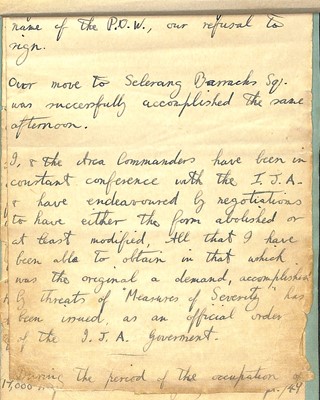 name of the P.O.W., our refusal to
sign.
Over move to Selerang Barracks Sq.
was successfully accomplished the same
afternoon.
I, & the Area Commanders have been in
constant conference with the I.J.A.
& have endeavoured by negotiations
to have either the form abolished or
at least modified, All that I have
been able to obtain in that which
was the original a demand, accomplished
by threats of "Measures of Severity" has
been issued, as an official order
of the I.J.A Goverment.
During the period of the occupation of
17,000